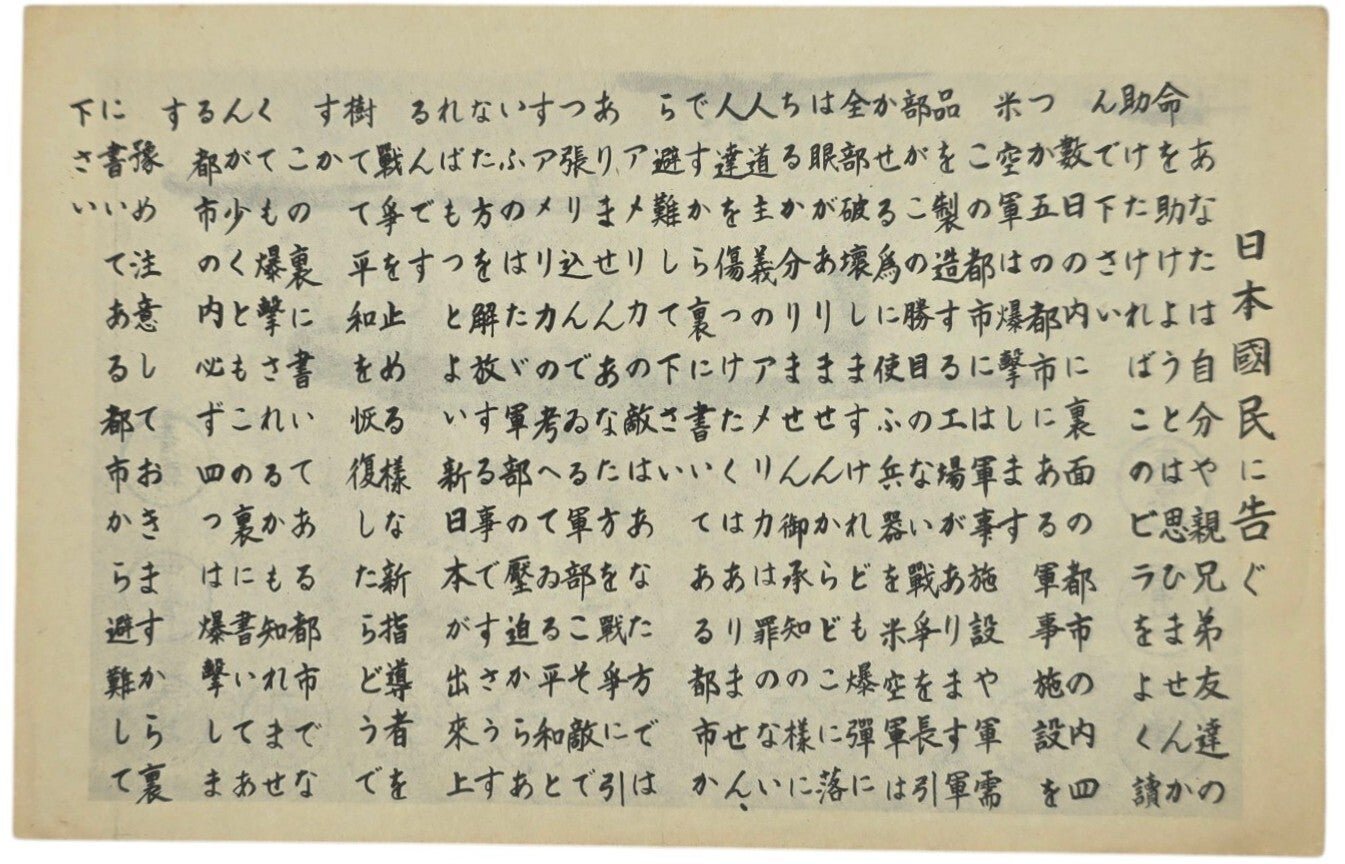 日本國民に告ぐ
あなたは自分や親兄弟友達の
命を助けようとは思ひませんか
助けたければこのビラをよく讀
んで下さい
數日の内に裏面の都市の内四
つか五の都市にある軍事施設を
米空軍は爆撃します
この都市には軍事施設や軍需
品を製造する工場があります軍
部がこの勝目のない戰爭を長引
かせる爲に使ふ兵器を米空軍は
全部破壞しますけれども爆彈に
は眼がありませんからどこに落
ちるか分りません御承知の様に
人道主義のアメリカは罪のない
人達を傷つけたくはありません、
ですから裏に書いてある都市か
ら避難して下さい
アメリカの敵はあなた方では
ありませんあなた方を戰爭に引
つ張り込んでゐる軍部こそ敵で
すアメリカの考へてゐる平和と
いふのはたゞ軍部の壓迫からあ
なた方を解放する事ですさうす
ればもつとよい新日本が出來上
るんです
戰爭を止める樣な新指導者を
樹てて平和を恢復したらどうで
すか
この裏に書いてある都市でな
くても爆撃されるかも知れませ
んが少くともこの裏に書いてあ
る都市の内必ず四つは爆撃しま
す
豫め注意しておきますから裏
に書いてある都市から避難して
下さい